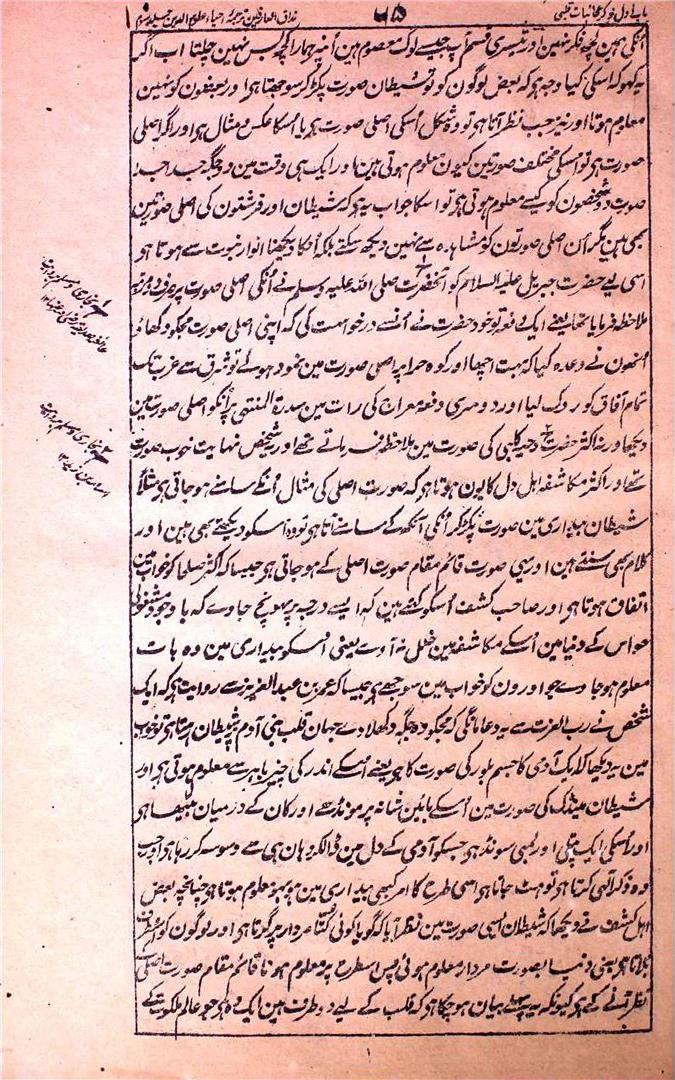 باب اول ذکر عجائبات قلبی
۶۵
مذاق العارفین ترجمہ احیاء علوم الدین جلد سوم
انکی ہمین کچھ فکر نہین اور تیسری قسم آپ جیسے لوگ معصوم ہین اُنپر ہمارا کچھ بس نہین چلتا اب اگر
یہ کہو کہ اسکی کیا وجہ ہو کہ بعض لوگون کو تو شیطان صورت پکڑکر سوجھتا ہو اور بعضون کو نہین
معلوم ہوتا اور نیز جب نظر آتا ہو تو وہ شکل اُسکی اصلی صورت ہو یا اُسکا عکس و مثال ہو اور اگر اصلی
صورت ہو تو اسکی مختلف صورتین کیون معلوم ہوتی ہین اور ایک ہی وقت مین دو جگہ جدا جدا
صورت دو شخصون کو کیسے معلوم ہوتی ہو تو اسکا جواب یہ ہو کہ شیطان اور فرشتون کی اصلی صورتین
بھی ہین مگر اُن اصلی صورتون کو مشاہدہ سے نہین دیکھ سکتے بلکہ اُنکا دیکھنا انوار نبوت سے ہوتا ہو
اسی لیے حضرت جبریل علیہ السلام کو آنحضرت صلی اللہ علیہ وسلم نے اُنکی اصلی صورت پر صرف دو مرتبہ
ملاحظہ فرمایا تھا یعنے ایک دفعہ تو خود حضرت نے اُنسے درخواست کی کہ اپنی اصلی صورت مجکو دکھاؤ
اُنھون نے وعدہ کیا کہ بہت اچھا اور کوہ حرا پر اصلی صورت مین نمود ہوئے تو شرق سے غرب تک
تمام آفاق کو روک لیا اور دوسری دفعہ معراج کی رات مین سدرۃ المنتہی پر اُنکو اصلی صورت مین
دیکھا ورنہ اکثر حضرت دحیہ کلبی کی صورت مین ملاحظہ فرماتے تھے اور یہ شخص نہایت خوب صورت
تھے اور اکثر مکاشفہ اہل دل کا یون ہوتا ہو کہ صورت اصلی کی مثال اُنکے سامنے ہو جاتی ہو مثلاً
شیطان بیداری مین صورت پکڑکر اُنکی آنکھ کے سامنے آتا ہو تو وہ اُسکو دیکھتے بھی ہین اور
کلام بھی سنتے ہین اور یہی صورت قائم مقام صورت اصلی کے ہو جاتی ہو جیسا کہ اکثر صلحا کو خواب مین
اتفاق ہوتا ہو اور صاحب کشف اُسکو کہتے ہین کہ ایسے درجہ پر پہونچ جاوے کہ با وجود مشغولی
حواس کے دنیا مین اُسکے مکاشفہ مین خلل نہ آوے یعنی اُسکو بیداری مین وہ بات
معلوم ہو جاوے جو اورون کو خواب مین سوجھے ہو جیسا کہ عمر بن عبد العزیز سے روایت ہو کہ ایک
شخص نے رب العزت سے یہ دعا مانگی کہ مجکو وہ جگہ دکھلا دے جہان قلب بنی آدم پر شیطان رہتا ہو تو خواب
مین یہ دیکھا کہ ایک آدمی کا جسم بلور کی صورت کا ہو یعنے اُسکے اندر کی چیز باہر سے معلوم ہوتی ہو اور
شیطان مینڈک کی صورت مین اُسکے بائین شانہ پر مونڈھے اور کان کے درمیان بیٹھا ہو
اور اُسکی ایک پتلی اور لمبی سونڈ ہو جسکو آدمی کے دل مین ڈالکر وہان ہی سے وسوسہ کر رہا ہو اور جب
وہ ذکر الٰہی کرتا ہو تو ہٹ جاتا ہو اسی طرح کا امر کبھی بیداری مین ہو بہو معلوم ہوتا ہو چنانچہ بعض
اہل کشف نے دیکھا کہ شیطان ایسی صورت مین نظر آیا کہ گویا کوئی کتا مردار پر گرتا ہو اور لوگون کو اسطرف
بلاتا ہو یعنی دنیا بصورت مردار معلوم ہوئی پس اسطرح پر معلوم ہونا قائم مقام صورت اصلی کے
نظر آنے کے ہو کیونکہ یہ پہلے بیان ہو چکا ہو کہ قلب کے لیے دو طرف ہین ایک وہ ہو جو عالم ملکوت کے